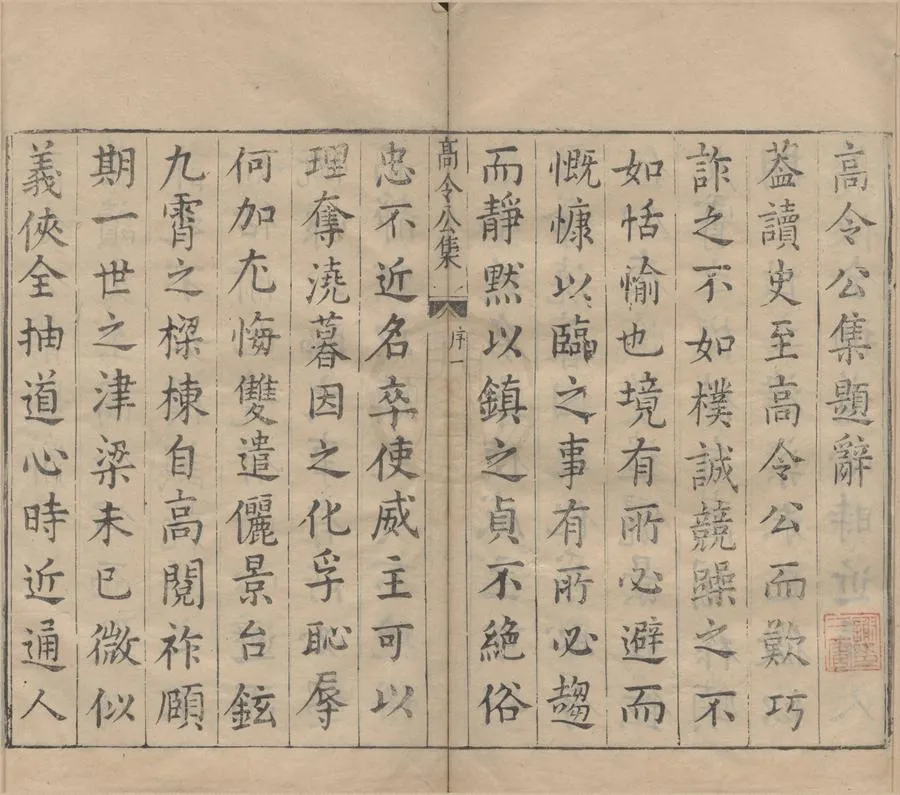 高令公集題辭
葢讀史至高令公而歎巧
詐之不如樸誠競躁之不
如恬愉也境有所必避而
慨慷以臨之事有所必趨
而靜默以鎮之貞不絶俗
高令公集
序一
忠不近名卒使威主可以
理奪澆暮因之化孚恥辱
何加尢悔雙遣儷景台鉉
九霄之樑棟自高閱祚頤
期一世之津梁未已微似
義俠全抽道心時近通人